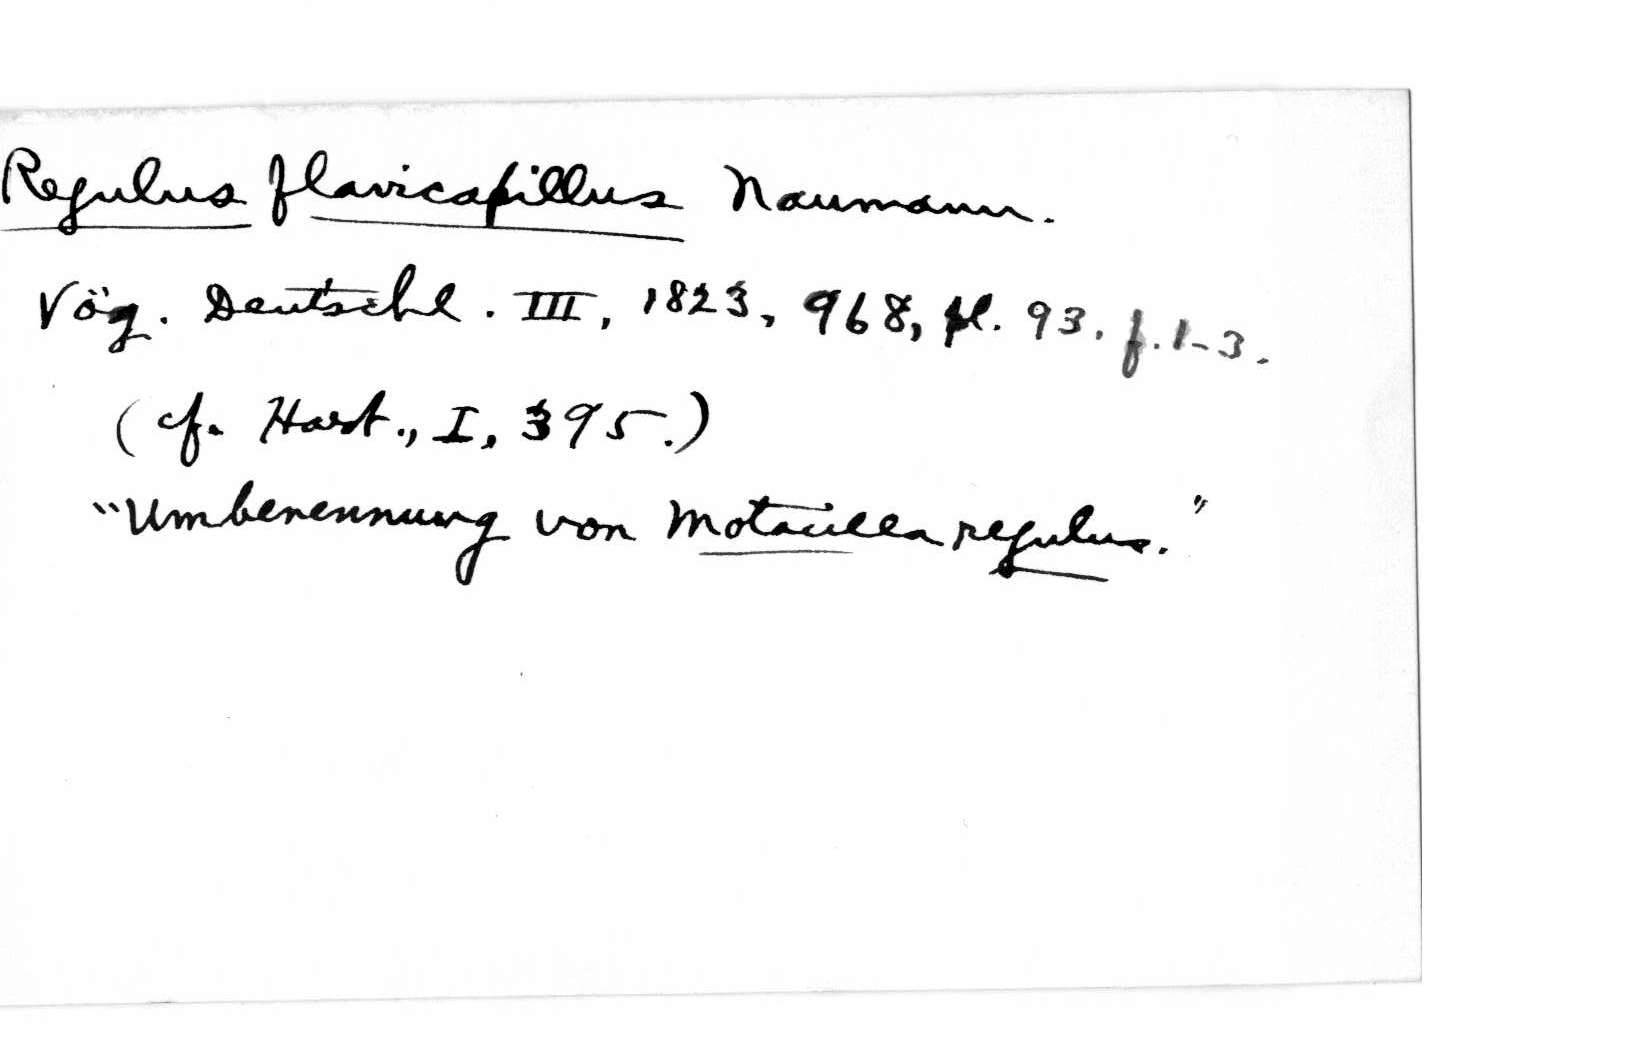 Regulus flavicapillus Naumann.
Vög. Deutschl. III, 1823, 968, pl. 93. f. 1-3.
(cf. Hart., I, 395.)
"Umbenennung von Motacilla regulus."